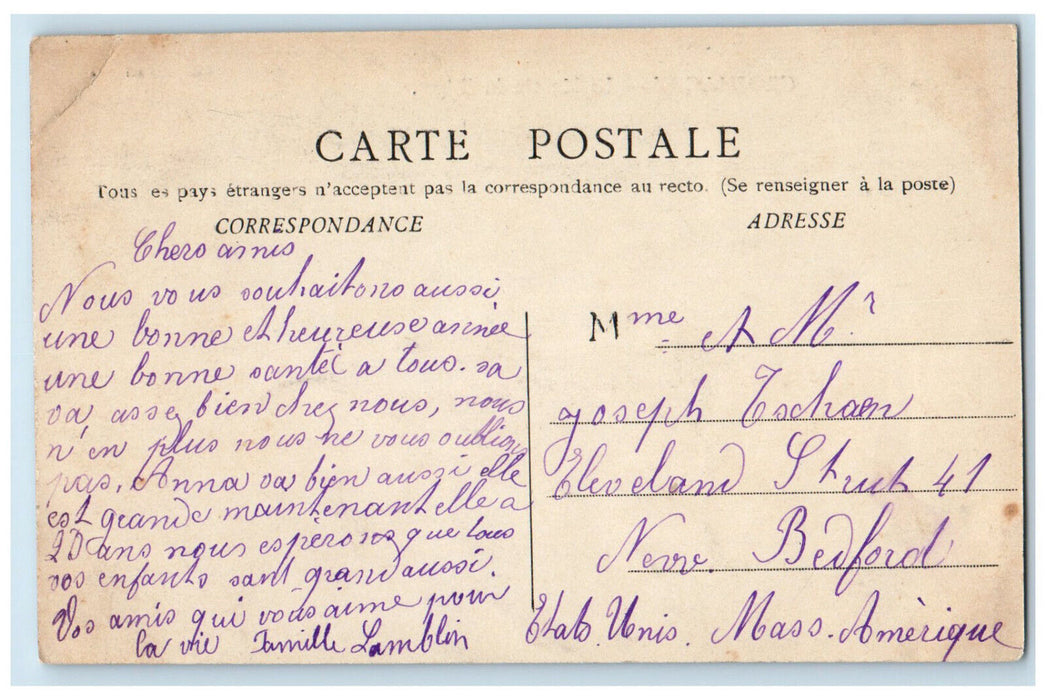 CARTE POSTALE
Tous es pays étrangers n'acceptent pas la correspondance au recto. (Se renseigner à la poste)
CORRESPONDANCE
Chers amis
Nous vous souhaitons aussi
une bonne et heureuse année
une bonne santé a tous. sa
va, assez bien chez nous, nous
n'en plus nous ne vous oublions
pas. Anna va bien aussi elle
est grande maintenant elle a
ans nous espèrons que tous
vos enfants sont grand aussi.
Vos amis qui vous aime pour
la vie Famille Lamblin
ADRESSE
Mme et Mr
joseph Tschaen
Cleveland Strut 41
New. Bedford
Etats. Unis. Mass. Amèrique